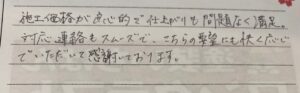 施工価格が良心的で仕上がりも問題なく満足。
対応、連絡もスムーズで、こちらの要望にも快く応じ
ていただいて感謝しております。